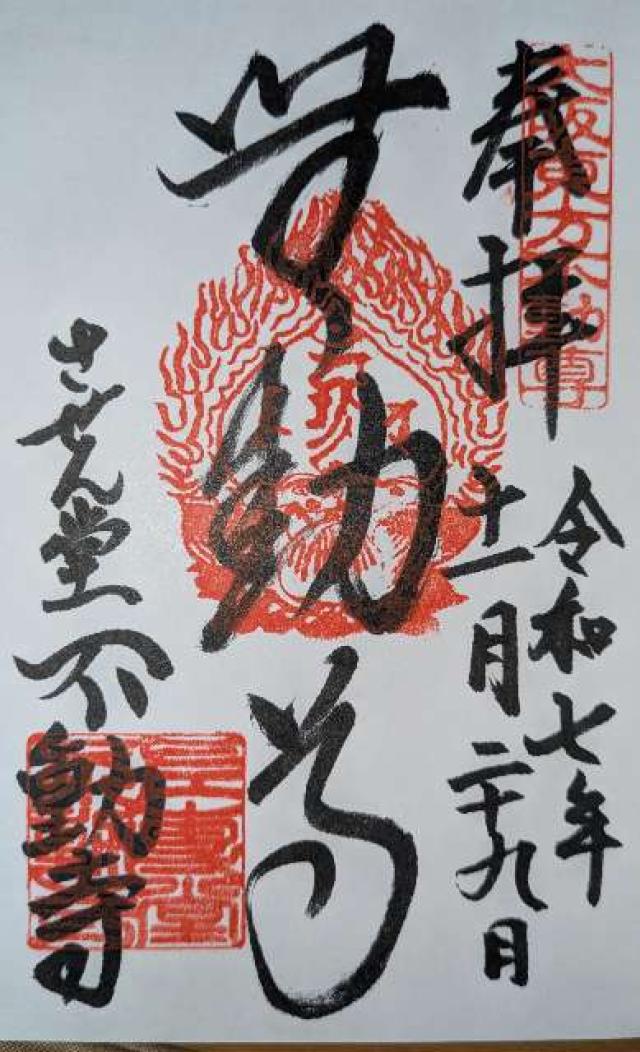 大阪東方不動尊
奉拝
令和七年
十一月二十九日
無動尊
さぜん堂
不動寺